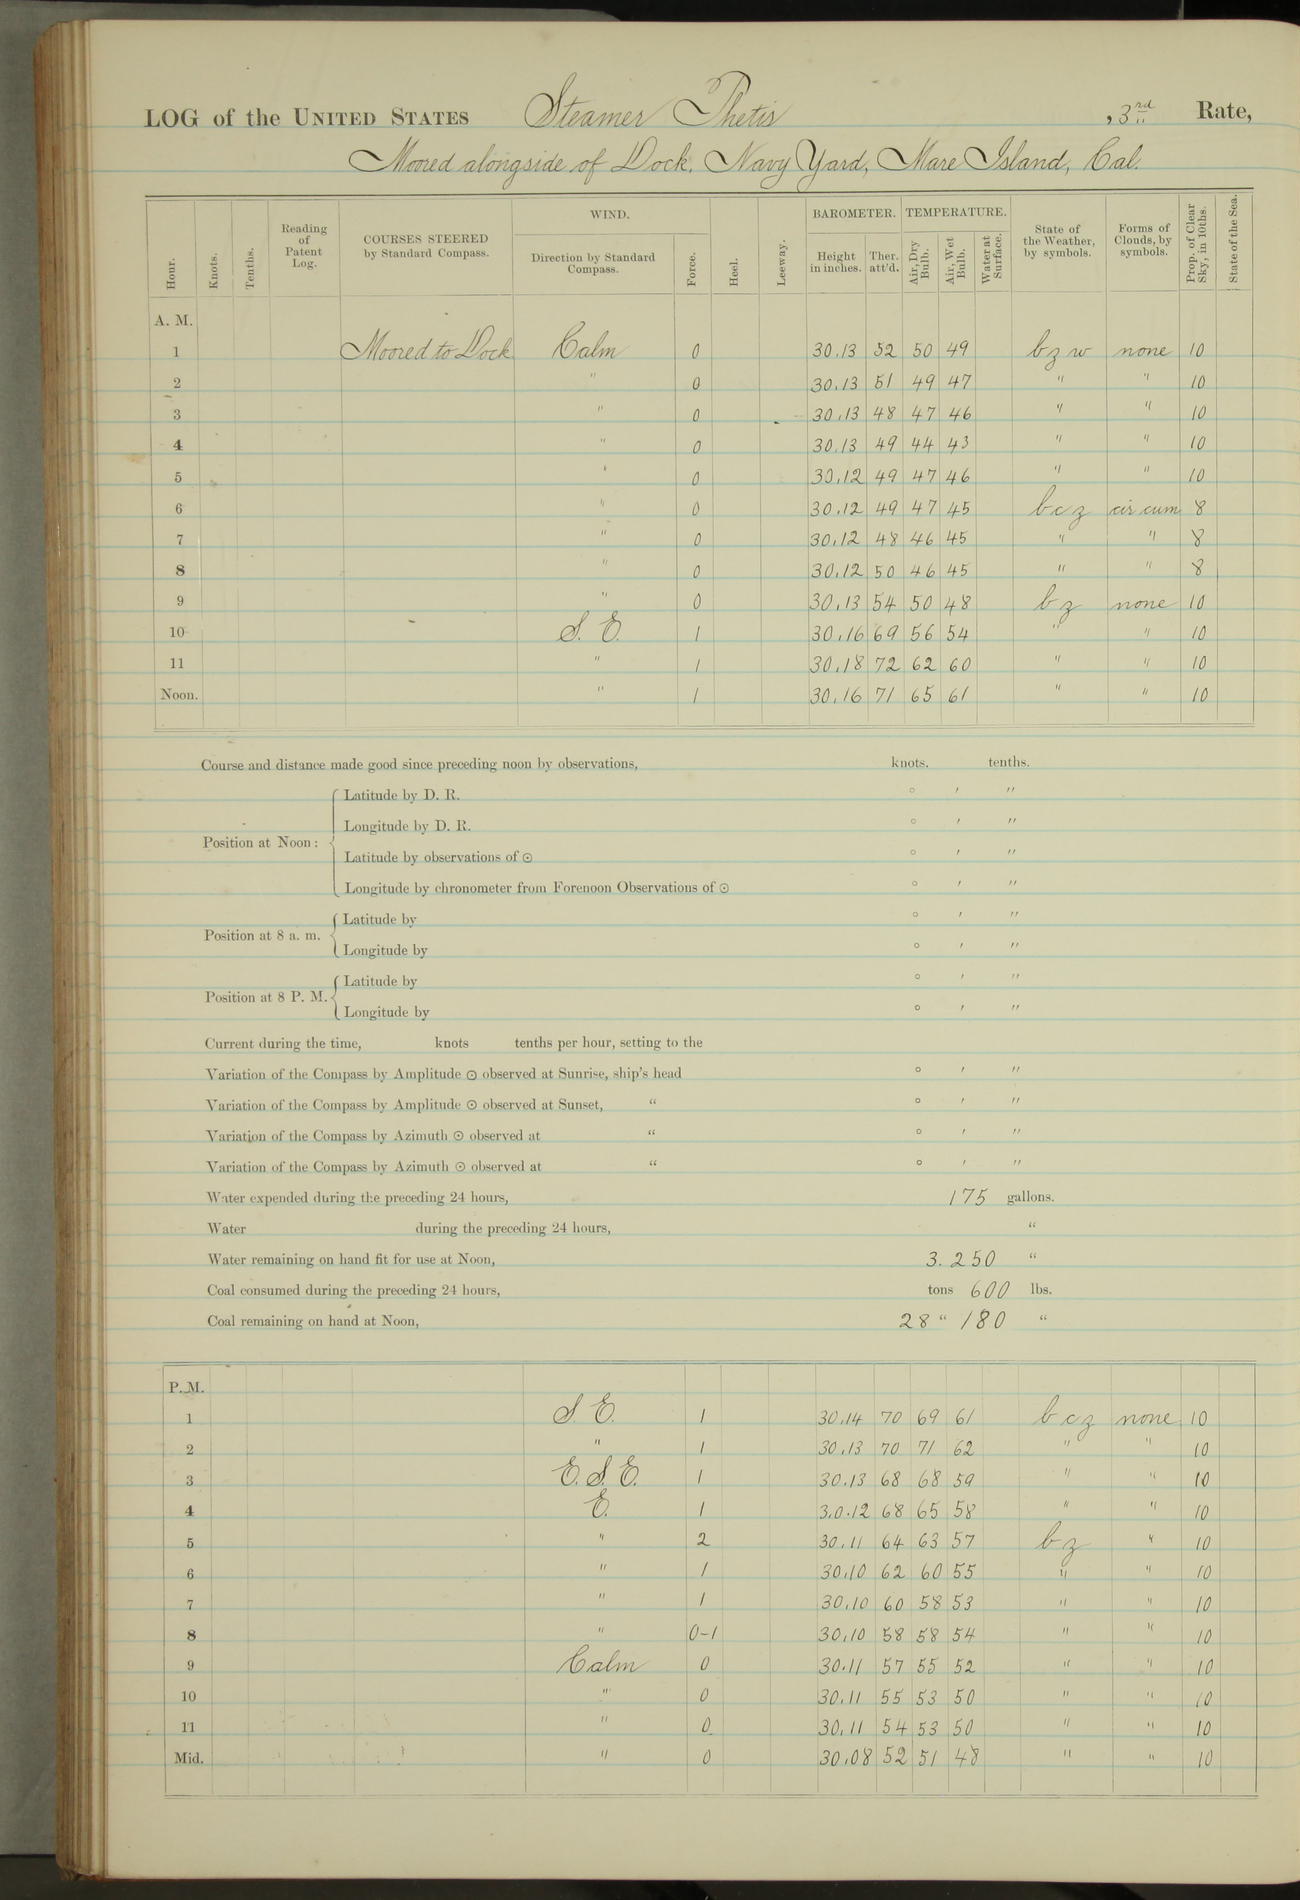 LOG of the UNITED STATES Steamer Thetis, 3rd Rate,
Moored alongside of Dock, Navy Yard, Mare Island, Cal.
Hour. Knots. Tenths. Reading of Patent Log. COURSES STEERED by Standard Compass. WIND. Direction by Standard Compass. Force. Heel. Leeway. BAROMETER. Height in inches. Ther. att'd. TEMPERATURE. Air, Dry Bulb. Air, Wet Bulb. Water at Surface. State of the Weather, by symbols. Forms of Clouds, by symbols. Prop. of Clear Sky, in 10ths. State of the Sea.
A. M.
1 Moored to Dock Calm 0 30.13 52 50 49 b z w none 10
2 " 0 30.13 51 49 47 " " 10
3 " 0 30.13 48 47 46 " " 10
4 " 0 30.13 49 44 43 " " 10
5 " 0 30.12 49 47 46 " " 10
6 " 0 30.12 49 47 45 b c z cir cum 8
7 " 0 30.12 48 46 45 " " 8
8 " 0 30.12 50 46 45 " " 8
9 " 0 30.13 54 50 48 b z none 10
10 S. E. 1 30.16 69 56 54 " " 10
11 " 1 30.18 72 62 60 " " 10
Noon. " 1 30.16 71 65 61 " " 10
Course and distance made good since preceding noon by observations, knots. tenths.
Latitude by D. R. ° ′ ″
Longitude by D. R. ° ′ ″
Position at Noon:
Latitude by observations of ⊙ ° ′ ″
Longitude by chronometer from Forenoon Observations of ⊙ ° ′ ″
Latitude by ° ′ ″
Position at 8 a. m.
Longitude by ° ′ ″
Latitude by ° ′ ″
Position at 8 P. M.
Longitude by ° ′ ″
Current during the time, knots tenths per hour, setting to the
Variation of the Compass by Amplitude ⊙ observed at Sunrise, ship's head ° ′ ″
Variation of the Compass by Amplitude ⊙ observed at Sunset, “ ° ′ ″
Variation of the Compass by Azimuth ⊙ observed at “ ° ′ ″
Variation of the Compass by Azimuth ⊙ observed at “ ° ′ ″
Water expended during the preceding 24 hours, 175 gallons.
Water during the preceding 24 hours, “
Water remaining on hand fit for use at Noon, 3.250 “
Coal consumed during the preceding 24 hours, tons 600 lbs.
Coal remaining on hand at Noon, 28 “ 180 “
P. M.
1 S. E. 1 30.14 70 69 61 b c z none 10
2 " 1 30.13 70 71 62 " " 10
3 E. S. E. 1 30.13 68 68 59 " " 10
4 E. 1 30.12 68 65 58 " " 10
5 " 2 30.11 64 63 57 b z " 10
6 " 1 30.10 62 60 55 " " 10
7 " 1 30.10 60 58 53 " " 10
8 " 0-1 30.10 58 58 54 " " 10
9 Calm 0 30.11 57 55 52 " " 10
10 " 0 30.11 55 53 50 " " 10
11 " 0 30.11 54 53 50 " " 10
Mid. " 0 30.08 52 51 48 " " 10